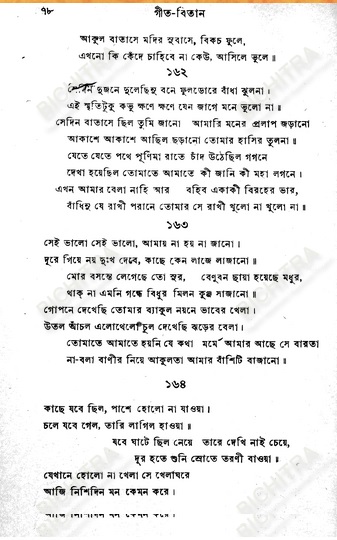 ৭৮ গীত-বিতান
আকুল বাতাসে মদির সুবাসে, বিকচ ফুলে,
এখনো কি কেঁদে চাহিবে না কেউ, আসিলে ভুলে॥
১৬২
দুজনে দুলেছিনু বনে ফুলডোরে বাঁধা ঝুলনা।
এই স্মৃতিটুকু কভু ক্ষণে ক্ষণে যেন জাগে মনে ভুলো না॥
সেদিন বাতাসে ছিল তুমি জানো আমারি মনের প্রলাপ জড়ানো
আকাশে আকাশে আছিল ছড়ানো তোমার হাসির তুলনা॥
যেতে যেতে পথে পূর্ণিমা রাতে চাঁদ উঠেছিল গগনে
দেখা হয়েছিল তোমাতে আমাতে কী জানি কী মহা লগনে।
এখন আমার বেলা নাহি আর বহিব একাকী বিরহের ভার,
বাঁধিনু যে রাখী পরানে তোমার সে রাখী খুলো না খুলো না॥
১৬৩
সেই ভালো সেই ভালো, আমায় না হয় না জানো।
দূরে গিয়ে নয় দুঃখ দেবে, কাছে কেন লাজে লাজানো॥
মোর বসন্তে লেগেছে তো সুর, বেণুবন ছায়া হয়েছে মধুর,
থাক্‌ না এমনি গন্ধে বিধুর মিলন কুঞ্জ সাজানো॥
গোপনে দেখেছি তোমার ব্যাকুল নয়নে ভাবের খেলা।
উতল আঁচল এলোথেলো চুল দেখেছি ঝড়ের বেলা।
তোমাতে আমাতে হয়নি যে কথা মর্মে আমার আছে সে বারতা
না-বলা বাণীর নিয়ে আকুলতা আমার বাঁশিটি বাজানো॥
১৬৪
কাছে যবে ছিল, পাশে হোলো না যাওয়া।
চলে যবে গেল, তারি লাগিল হাওয়া॥
যবে ঘাটে ছিল নেয়ে তারে দেখি নাই চেয়ে,
দূর হতে শুনি স্রোতে তরণী বাওয়া॥
যেখানে হোলো না খেলা সে খেলাঘরে
আজি নিশিদিন মন কেমন করে।
আজি নিশিদিন মন কেমন করে।